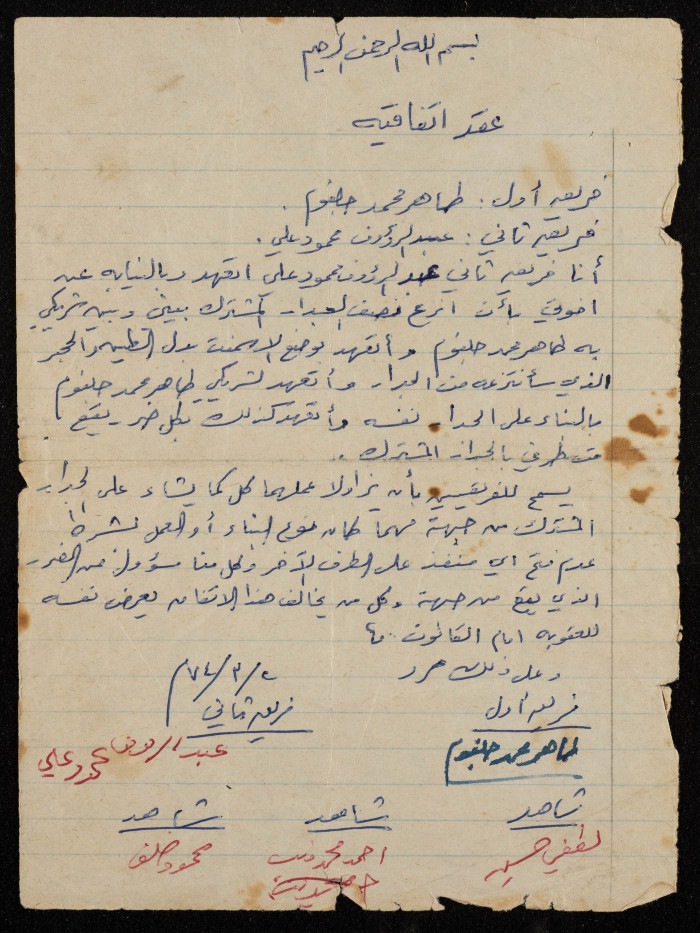 بسم الله الرحمن الرحيم
عقد اتفاقيه
فريق أول : طاهر محمد جلغوم .
فريق ثاني : عبد الرؤوف محمود علي .
أنا فريق ثاني عبد الرؤوف محمود علي اتعهد وبالنيابه عن
اخوتي بأن انزع نصف الجدار المشترك بيني وبين شريكي
به طاهر محمد جلغوم وأتعهد بوضع الاسمنت بدل الطين والحجر
الذي سأنتزعه من الجدار وأتعهد لشريكي طاهر محمد جلغوم
بالبناء على الجدار نفسه وأتعهد كذلك بكل ضرر يقع
من طرفي بالجدار المشترك ..
يسمح للفريقين بأن يزاولا عملهما كل كما يشاء على الجدار
المشترك من جهته مهما كان نوع البناء أو العمل بشرط
عدم فتح اي منفذ على الطرف الآخر وكل منا مسؤول عن الضرر
الذي يقع من جهته وكل من يخالف هذا الاتفاق يعرض نفسه
للعقوبه امام القانون
وعلى ذلك حرر ٧٤/٣/٢م
فريق أول فريق ثاني
طاهر محمد جلغوم عبد الرؤوف محمود علي
شاهد شاهد شاهد
لطفي حسين احمد محمد محمود خلف